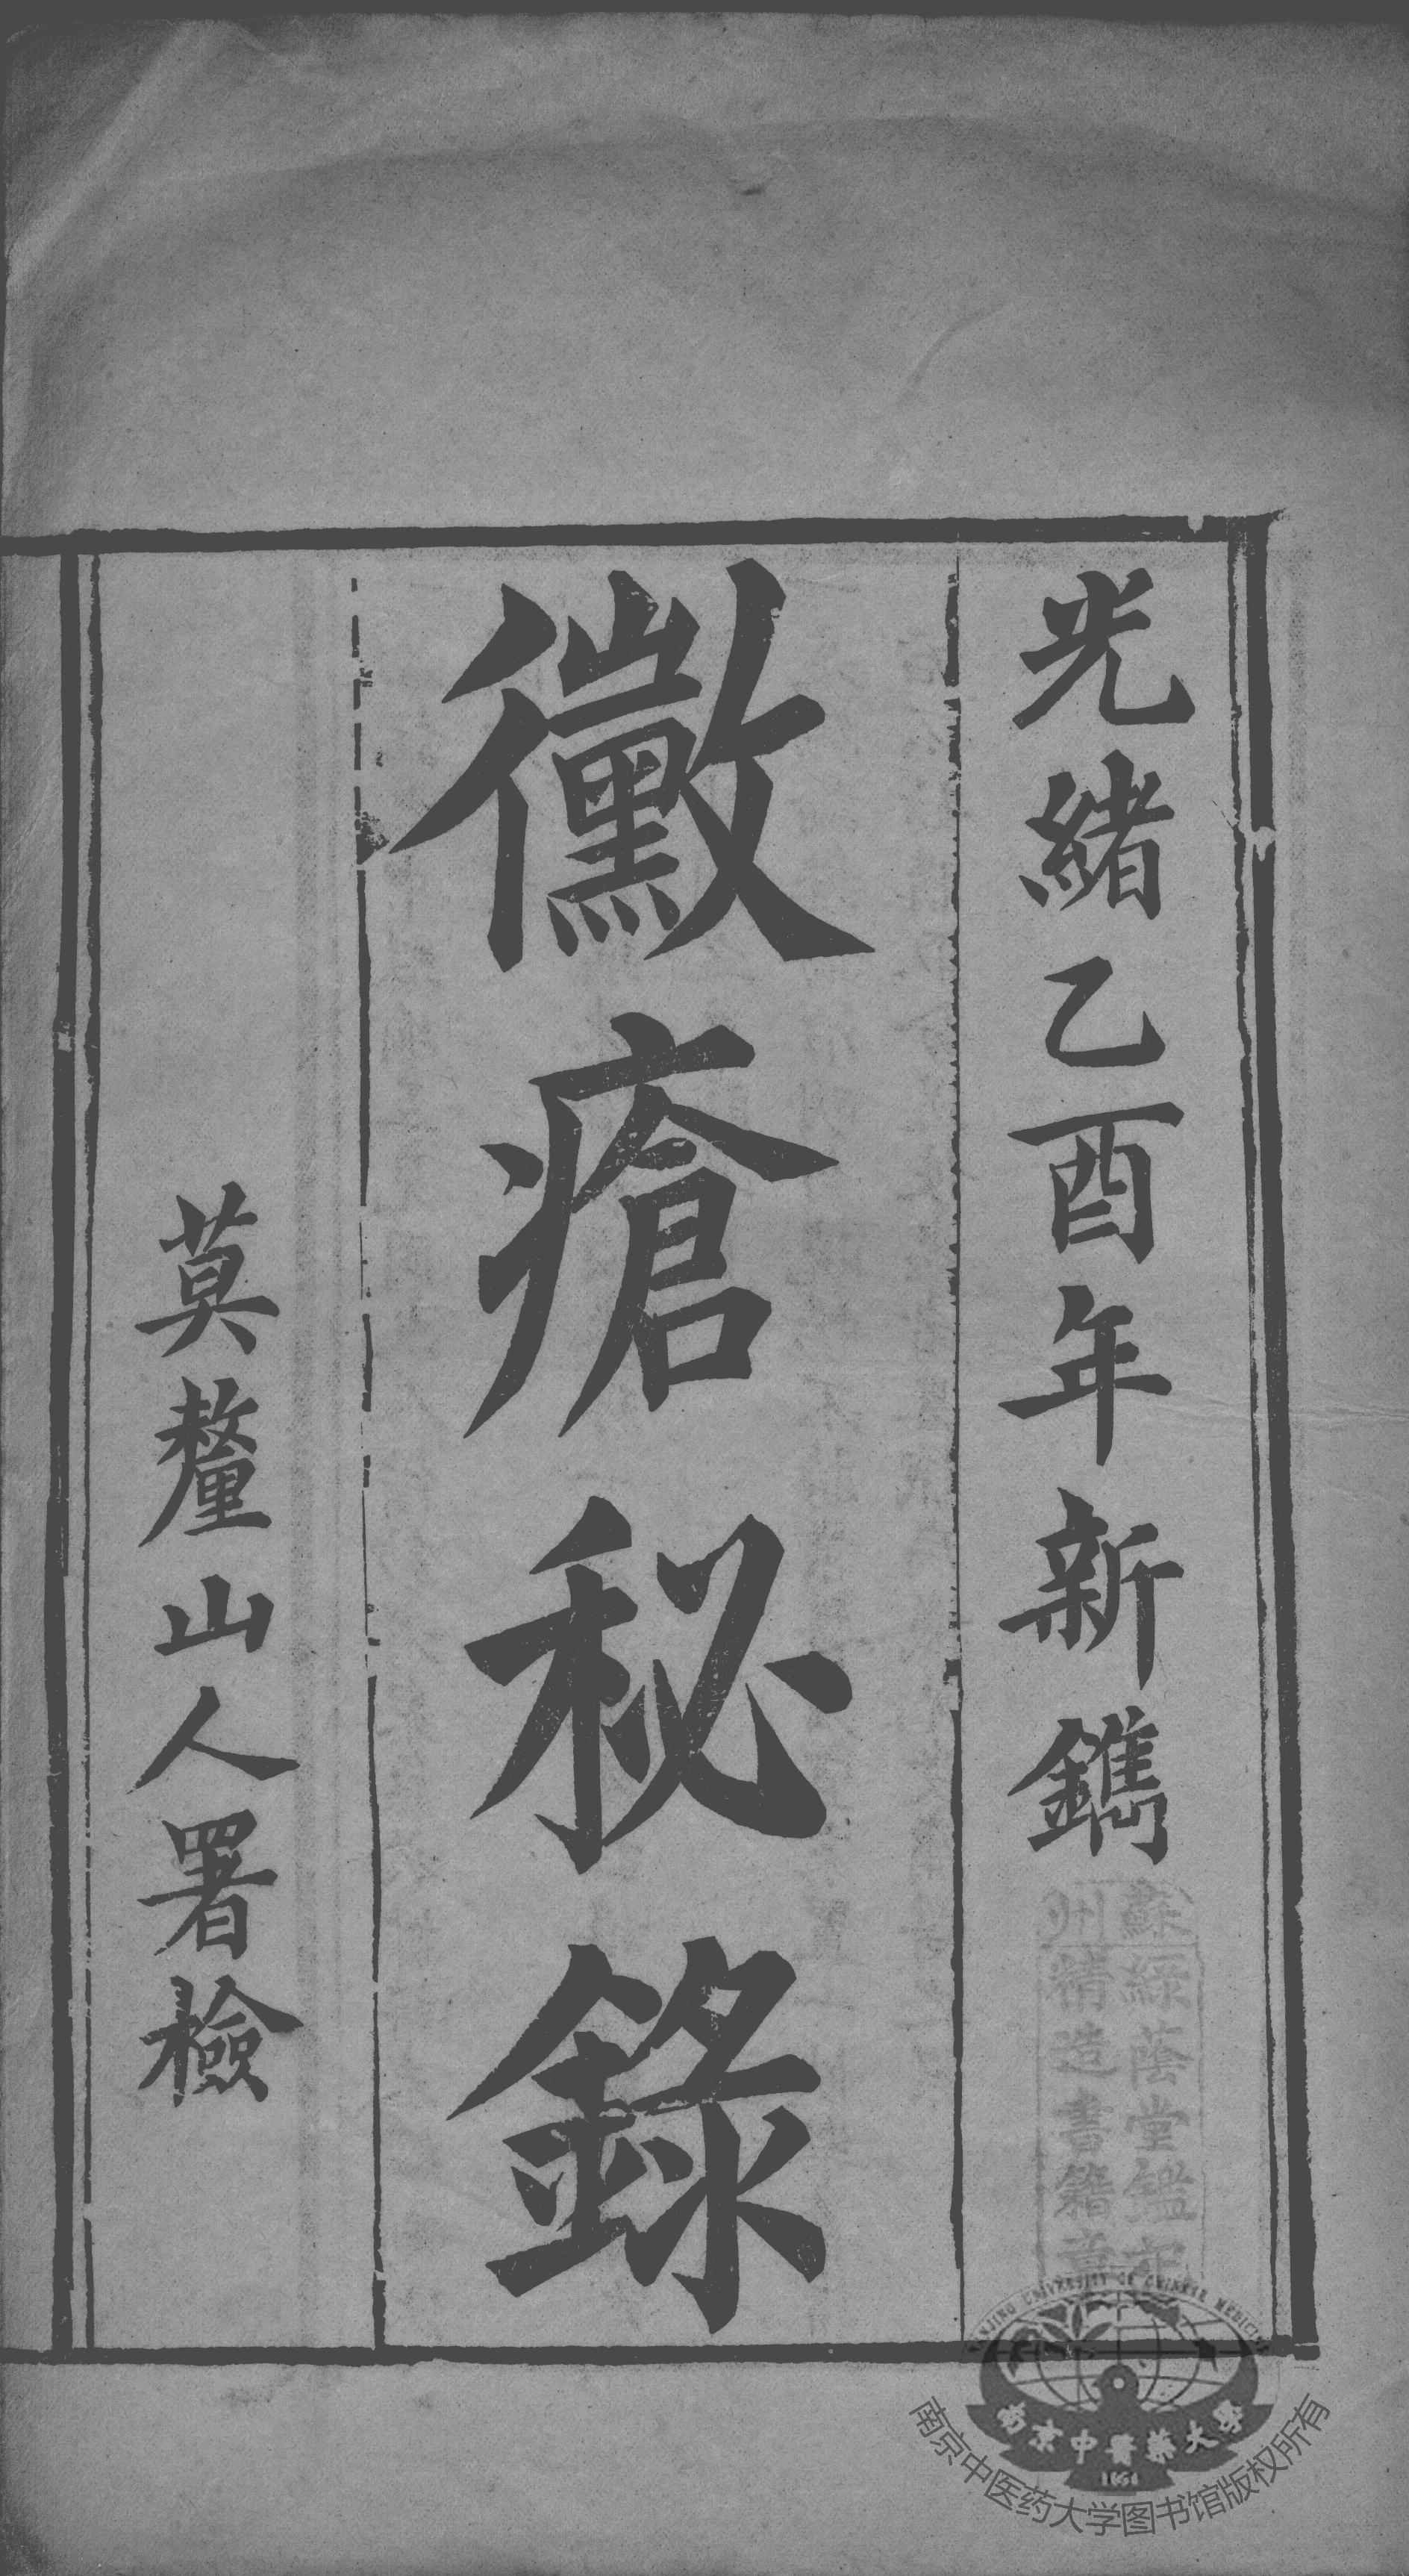 光緒乙酉年新鐫
蘇州
綠蔭堂鑑定
精造書籍章
黴瘡秘錄
莫釐山人署檢
NANJING UNIVERSITY OF CHINESE MEDICINE
南京中醫藥大學
1954
南京中医药大学图书馆版权所有